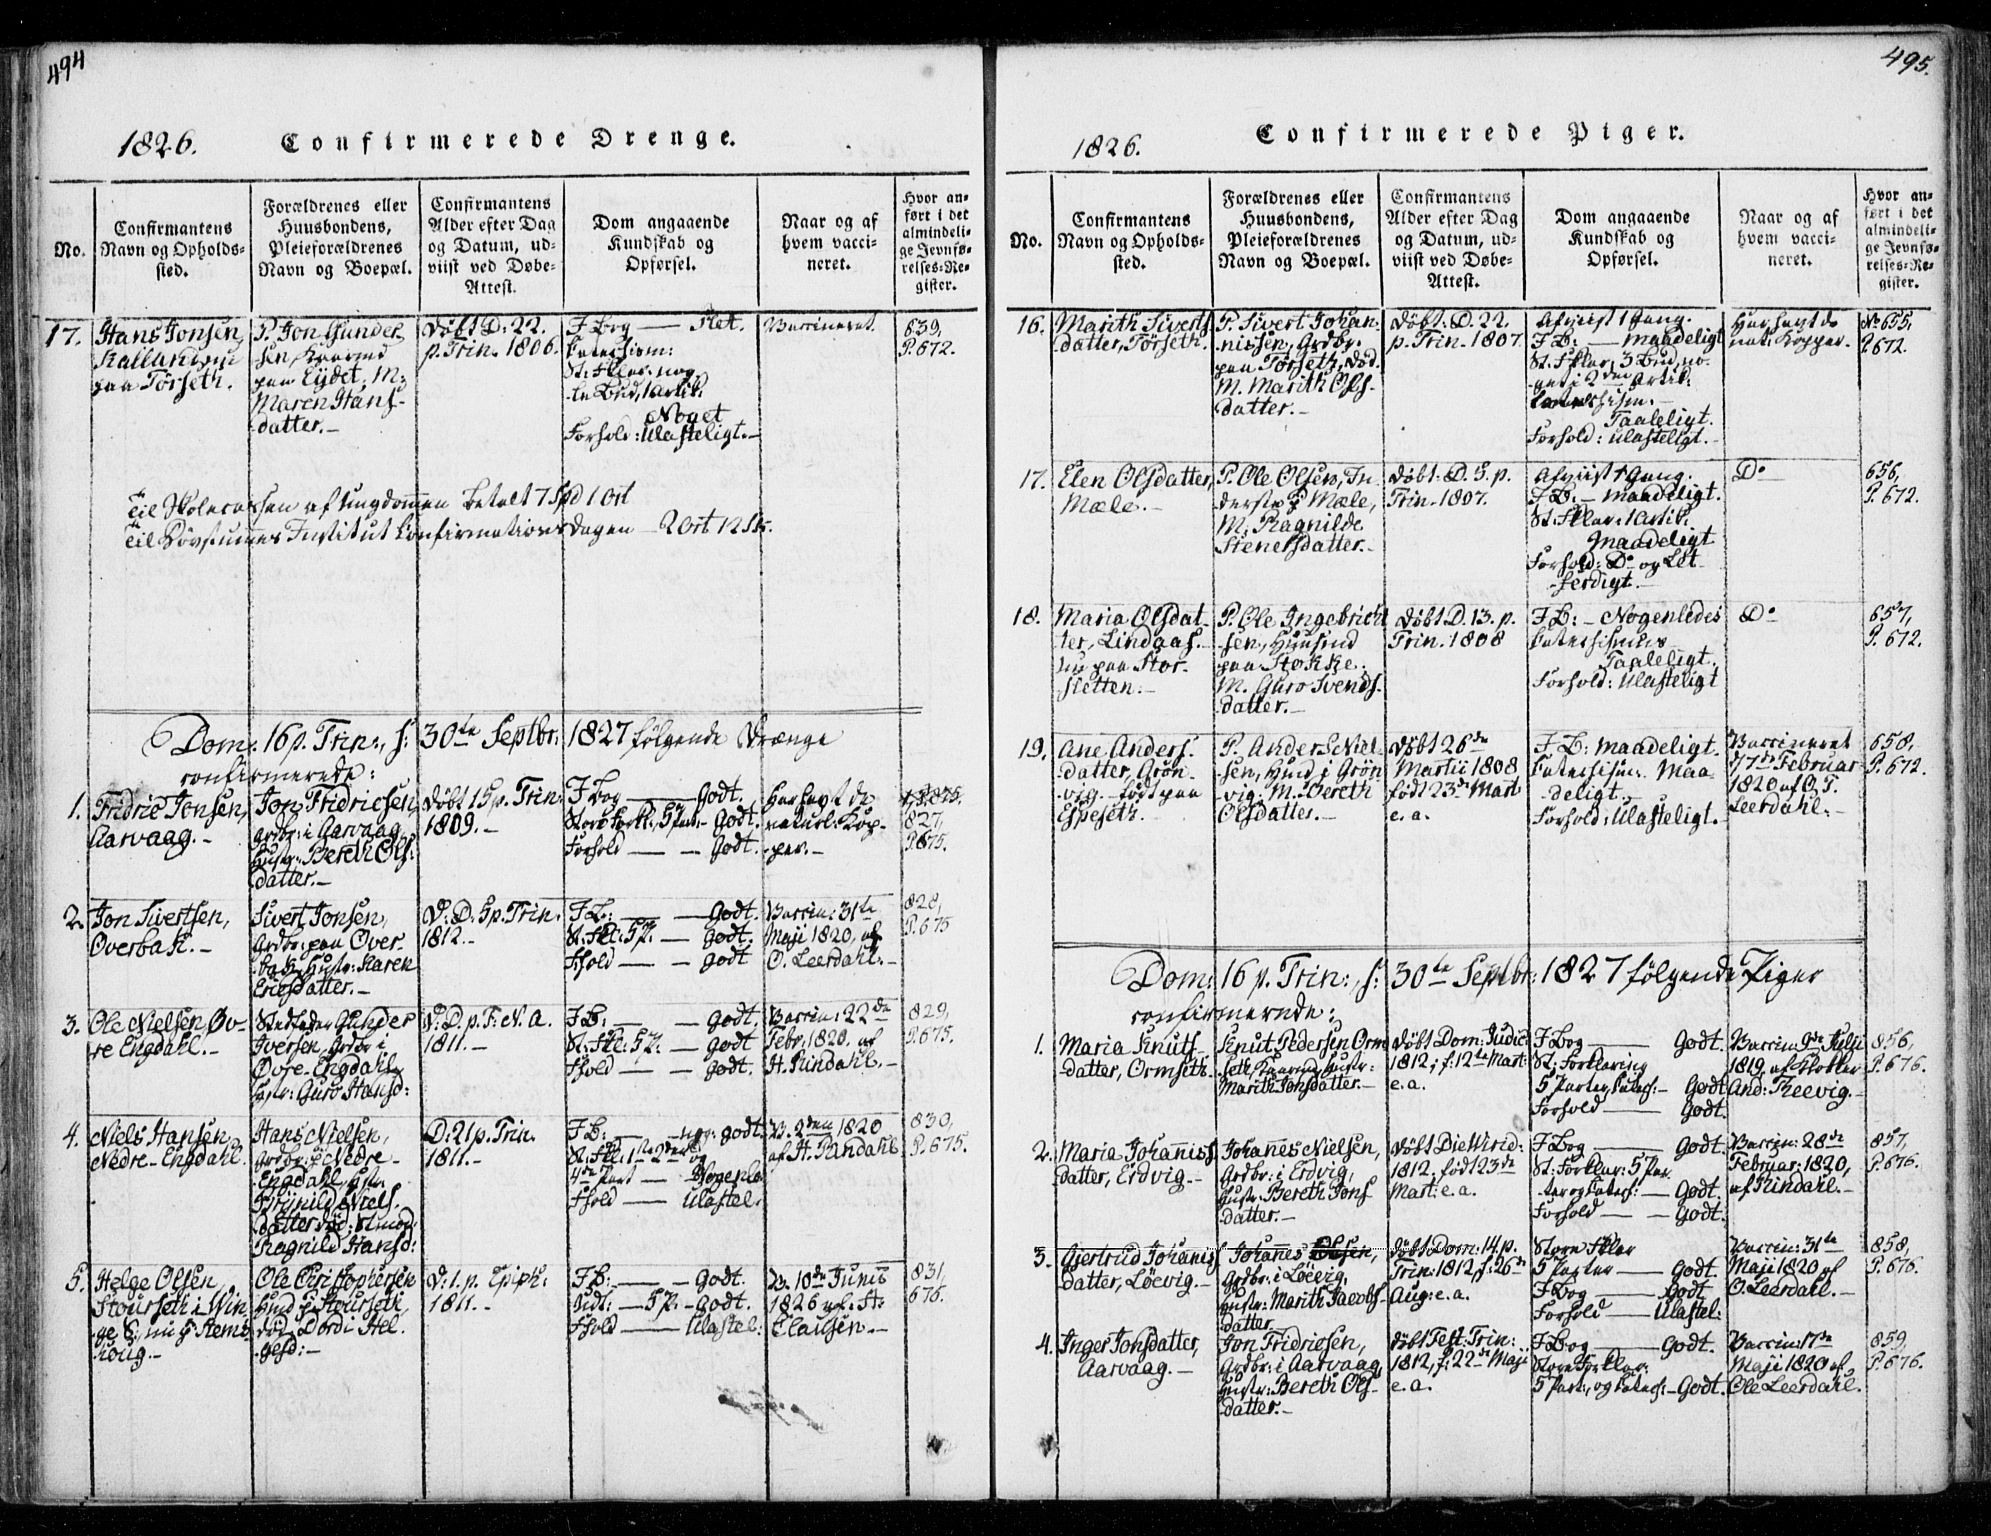 494
1826. Confirmerede Drenge.
No.
Confirmantens
Navn og Opholds-
sted.
Forældrenes eller
Huusbondens,
Pleieforældrenes
Navn og Boepæl.
Confirmantens
Alder efter Dag
og Datum, ud-
viist ved Døbe-
Attest.
Dom angaaende
Kundskab og
Opførsel.
Naar og af
hvem vacci-
neret.
Hvor an-
ført i det
almindeli-
ge Jevnfø-
relses-Re-
gister.
17.
Hans Jonsen,
paa Törseth.
P. Jon Gunder
sen,
paa Eydet, M:
Maren Hans-
datter.-
Döbt D: 22.
p. Trin. 1806.
F. Bog — Slet.
Catechism:
St: Fklar. nog-
le Bud, 1 Artik:
Noget
Forhold: Ulasteligt.-
Vaccineret.
839,
P. 672.
Til Skolecassen af Ungdommen betalt 7 Spd 1 Ort
Til Dövstummes Institut Confirmations Dagen - 2 Ort 12 Sk.
Dom: 16 p. Trin:, s: 30te Septbr: 1827 følgende Drænge
confirmerede:
1.
Fridric Jonsen,
Aarvaag.-
Jon Fridricsen,
Grdbr: i Aarvaag,
Hustr: Bereth Ols-
datter.-
Döbt 15 p. Trin:
1809.-
F. Bog — Godt.
Store Forkl., 5 Part: - Godt.
Forhold — Godt.
Har havt de
naturl: Kop-
per.-
827,
P. 675.
2.
Jon Sivertsen,
Overbak.-
Sivert Jonsen,
Grdbr: paa Over-
bak, Hustr: Karen
Ericsdatter.-
D: D. 5 p. Trin.
1812.-
F. B: — Godt.
St: Fkl: 5 P. — Godt.
Fhold — Godt
Vaccin: 31te
Maji 1820, af
O. Leerdahl.-
828,
P. 675
3.
Ole Nielsen, Öv-
re Engdahl.-
Stedfader Gunder
Iversen, Grdbr i
Övre-Engdahl,
Hstr: Guro Hansd:
D: D. p. F: N. A.
1811.-
F. B: — Godt.
St: Fkl: 5 P. — Godt
Fhold — Godt.
Vaccin: 22de
Febr: 1820. af
H. Rindahl.-
829,
P. 675.
4.
Niels Hansen,
Nedre-Engdahl.
Hans Nielsen,
Grdbr: i Nedre-
Engdahl, Hstr.
Brynild Niels-
datter död: Stmod:
Ragnild Hansd:
D: 21 p. Trin.
1811.-
F. B: — nog: godt.
St. Fkl: 1ste 2den og
4de Part — Nogenle.
Fhold — Ulastel:
V. 2den 1820
af H. Rindahl
830,
P. 675.
5.
Helge Olsen,
Stourseth i Win
ge S:, nu i Stems
houg.-
Ole Christophersen
Hmd i Stourseth,
död, Dordi Hel-
gesd:-
D: 1. p. Epiph:
1811.-
F. B: — Godt.
Udt: — 5 P. - Godt.
Fhold — Ulastel:
V. 10de Junii
1826 af: H:
Clausen.-
831,
676.
495.
1826. Confirmerede Piger.
No.
Confirmantens
Navn og Opholds-
sted.
Forældrenes eller
Huusbondens,
Pleieforældrenes
Navn og Boepæl.
Confirmantens
Alder efter Dag
og Datum, ud-
viist ved Døbe-
Attest.
Dom angaaende
Kundskab og
Opførsel.
Naar og af
hvem vacci-
neret.
Hvor an-
ført i det
almindeli-
ge Jevnfø-
relses-Re-
gister.
16.
Marith Siverts
datter, Törseth.
P. Sivert Johan-
nissen, Grdbr:
paa Törseth, död.
M. Marith Ols-
datter.-
Döbt: D. 22.
p. Trin. 1807.
Afviist 1 Gang.
F. B: — maadeligt
St: Fklar, 3 Bud, no-
get i 2den Artik:
Taaleligt.
Forhold: ulasteligt.-
Har havt de
nat: Kopper.
No 655,
P. 672.
17.
Elen Olsdatter,
Mæle.-
P. Ole Olsen, In-
derste p Mæle,
M. Ragnilde
Stenersdatter.-
Döbt: D. 5. p.
Trin. 1807.
Afviist 1 Gang.
F. B: - maadeligt.
St: Fklar: 1 Artik:
Maadeligt
Forhold: Do og Let-
færdigt.-
Do
656,
P. 672.
18.
Maria Olsdat-
ter, Lindaas.
nu paa Stor-
sletten.-
P. Ole Ingebricht
sen, Huusmd
paa Stokke.
M. Guro Svends-
datter.-
Döbt D. 13. p.
Trin. 1808
F. B: - Nogenledes
Catechismus
Taaleligt.
Forhold: Ulasteligt
Do
657,
P. 672.
19.
Ane Anders-
datter, Grön-
vig - födt paa
Espeseth.-
P. Anders Niel-
sen, Hmd i Grön
vig, M. Bereth
Olsdatter.-
Döbt 26de
Martii 1808
födt 23de Mart
e. a.
F. B: maadeligt.
Catechism: Maa-
deligt.
Forhold: Ulasteligt.
Vaccineret
17de Februar
1820 af O. T.
Leerdahl.-
658,
P. 672.
Dom: 16 p. Trin:, s: 30te Septbr: 1827 følgende Piger
confirmerede:
1.
Maria Knuts-
datter, Ormseth.
Knut Pedersen Orm
seth, Hustr:
Marith Jonsdatter.-
Döbt Dom: Judici
1812, f: 12te Mart:
e. a.
F. Bog — Godt.
St: Forklaring
5 Parter, Catech: - Godt
Forhold — Godt.
Vaccin: 9de Julii
1819 af Klokker
And: Reevig.-
856,
P. 676.
2.
Maria Johaniss
datter, Erdvig.-
Johanes Nielsen,
Grdbr: i Erdvig,
Hustr: Bereth Jons
datter.-
Döbt Die Virid:
1812, född 23de
Mart: e. a.
F. Bog — Godt.
St: Forklar: 5 Par-
ter og Catech: — Godt.
Forhold — Godt.
Vaccin: 28de
Februar: 1820,
af Rindahl.-
857,
P. 676.
3.
Gjertrud Johaniss
datter, Löevig.-
Johanes Olsen,
Grdbr: i Löevig,
Hustr: Marith Jacobs-
datter.
Döbt Dom: 14. p.
Trin: 1812, f. 26de
Aug: e. a.
Store Fklar
5 Parter — Godt.
F. Bog — Godt
Forhold — Ulastel:
Vaccin: 31te
Maji 1820 af
O. Leerdahl.-
858,
P. 676.
4.
Inger Jonsdatter,
Aarvaag.-
Jon Fridricsen,
Grdbr: i Aarvaag,
Hustr: Bereth Ols-
datter.-
Döbt Fest: Trin:
1812, f: 22de Maji
e. a.
F. Bog — Godt.
Store Forklar:
5 Part:, og Catech: - Godt.
Vaccin: 17de
Maji 1820 af
Ole Leerdahl.
859,
P. 676.